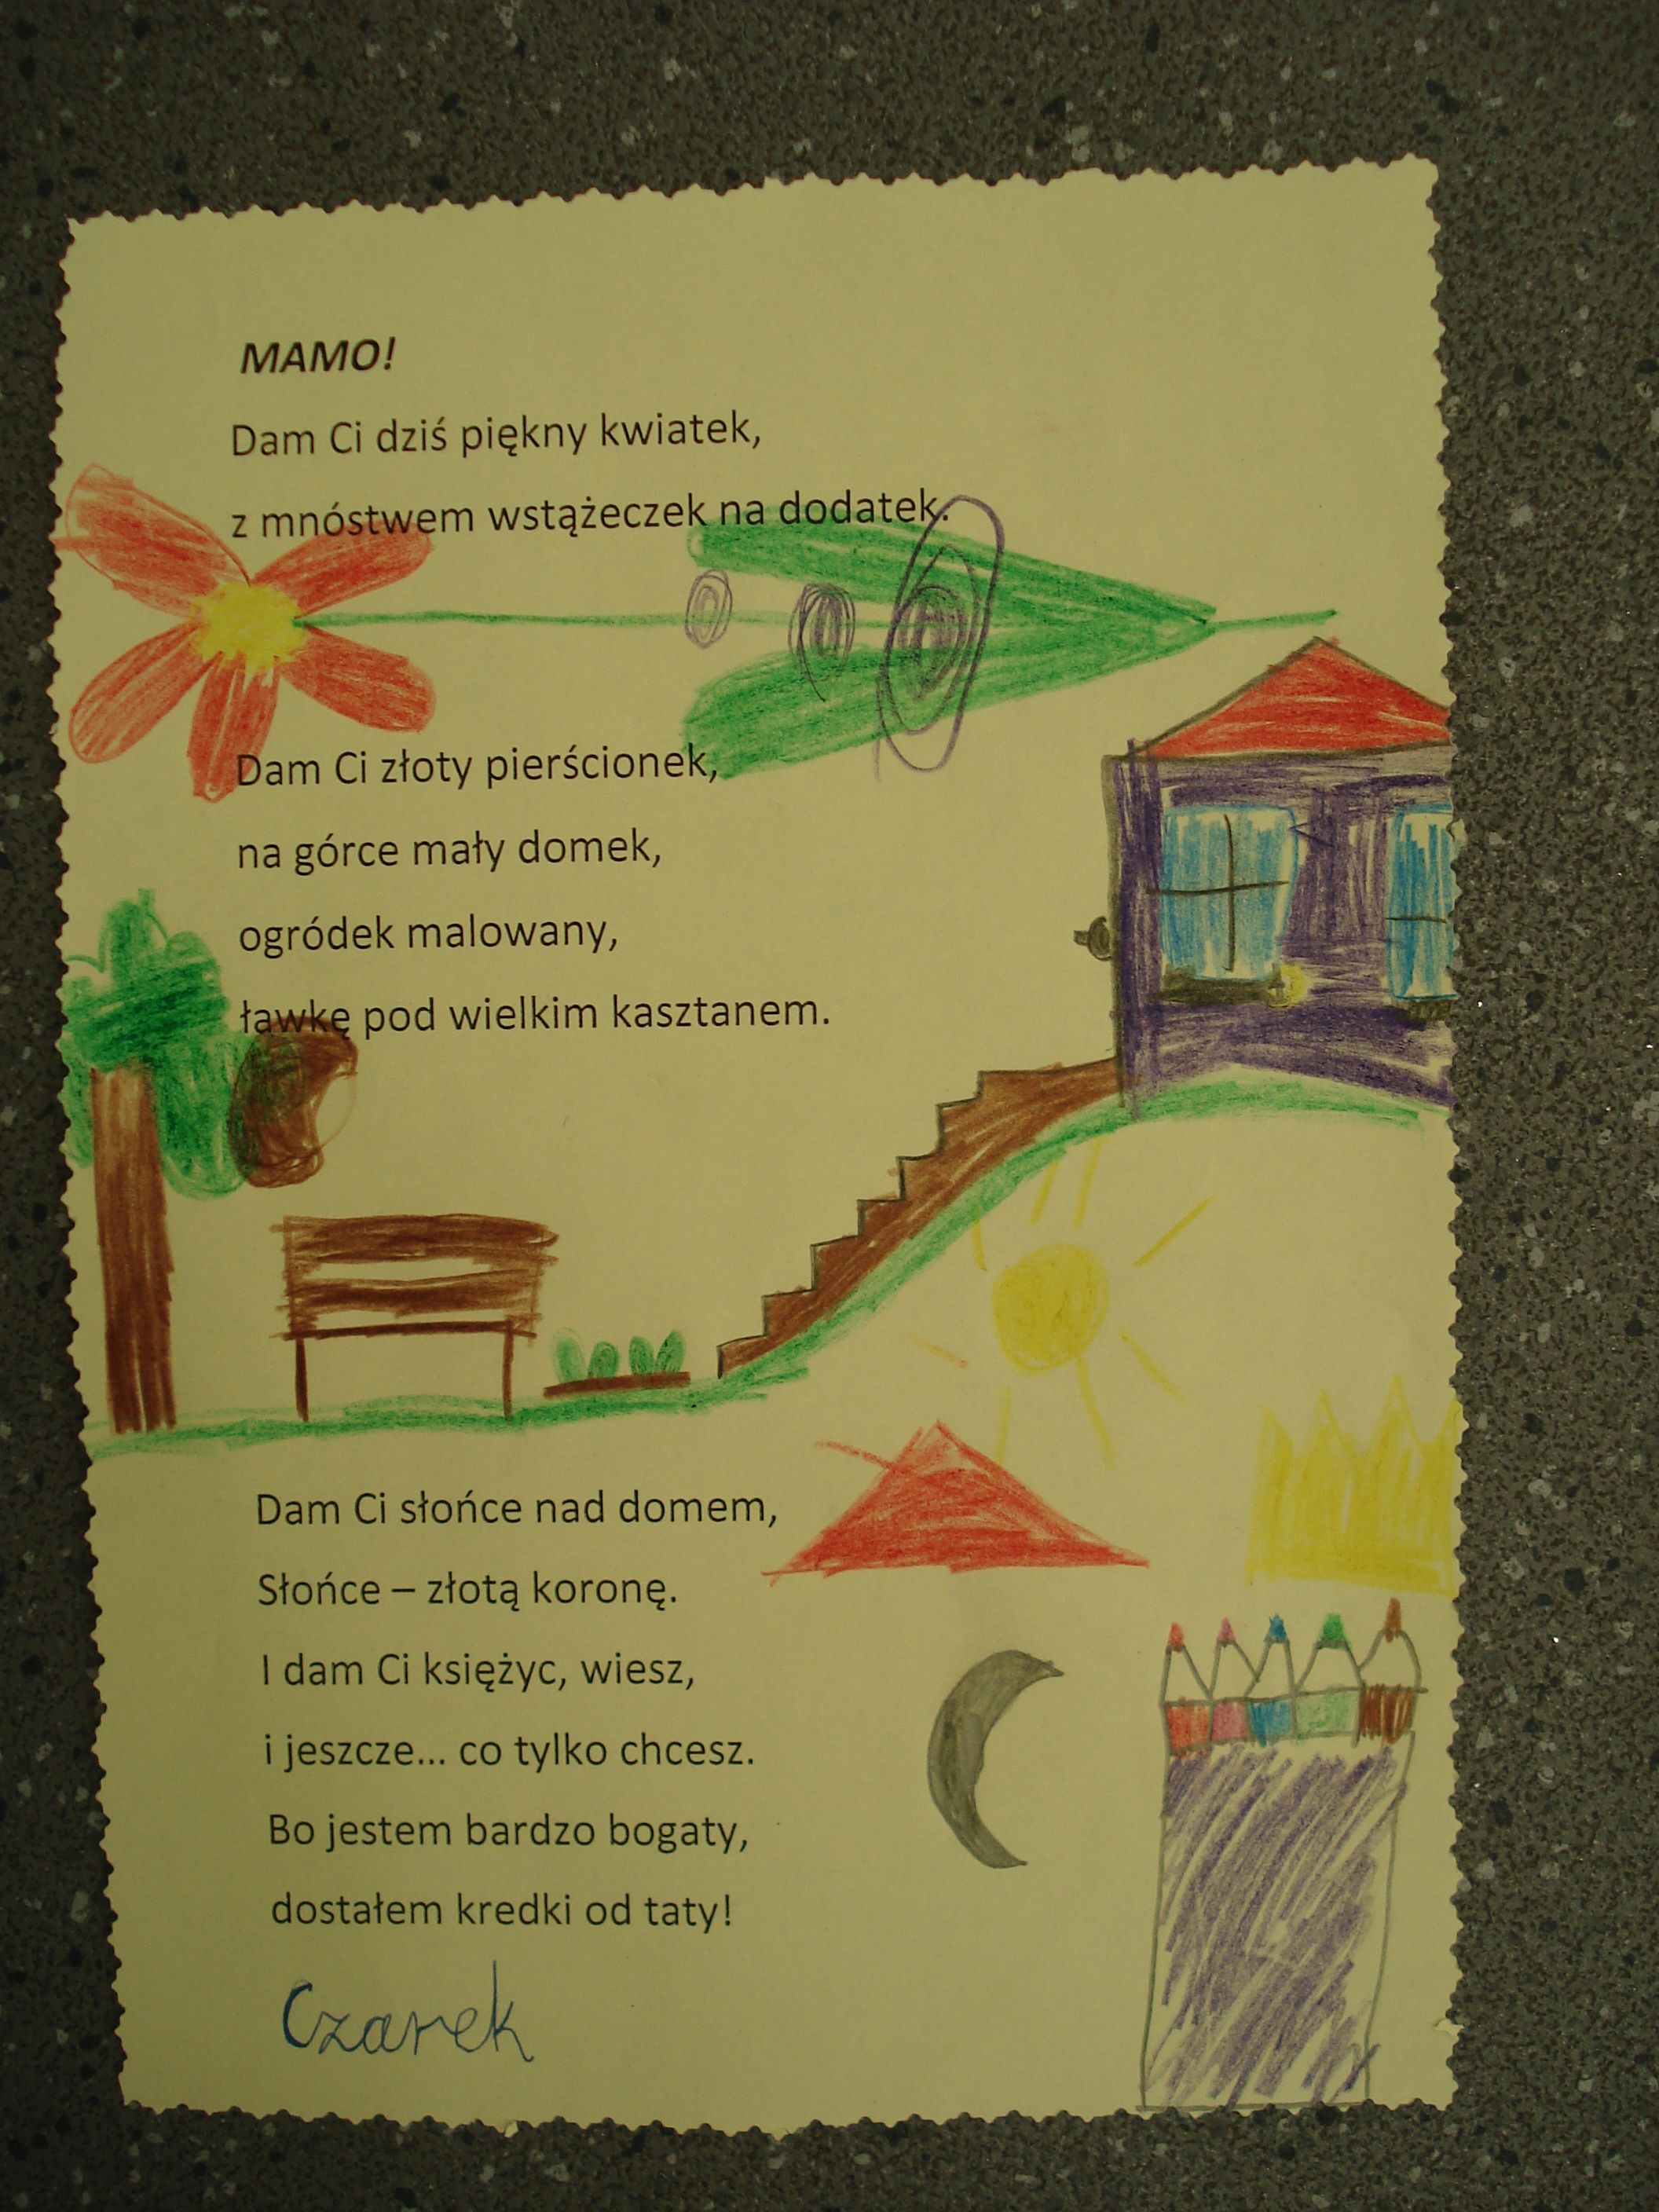 MAMO!
Dam Ci dziś piękny kwiatek,
z mnóstwem wstążeczek na dodatek.
Dam Ci złoty pierścionek,
na górce mały domek,
ogródek malowany,
ławkę pod wielkim kasztanem.
Dam Ci słońce nad domem,
Słońce – złotą koronę.
I dam Ci księżyc, wiesz,
i jeszcze... co tylko chcesz.
Bo jestem bardzo bogaty,
dostałem kredki od taty!
Czarek